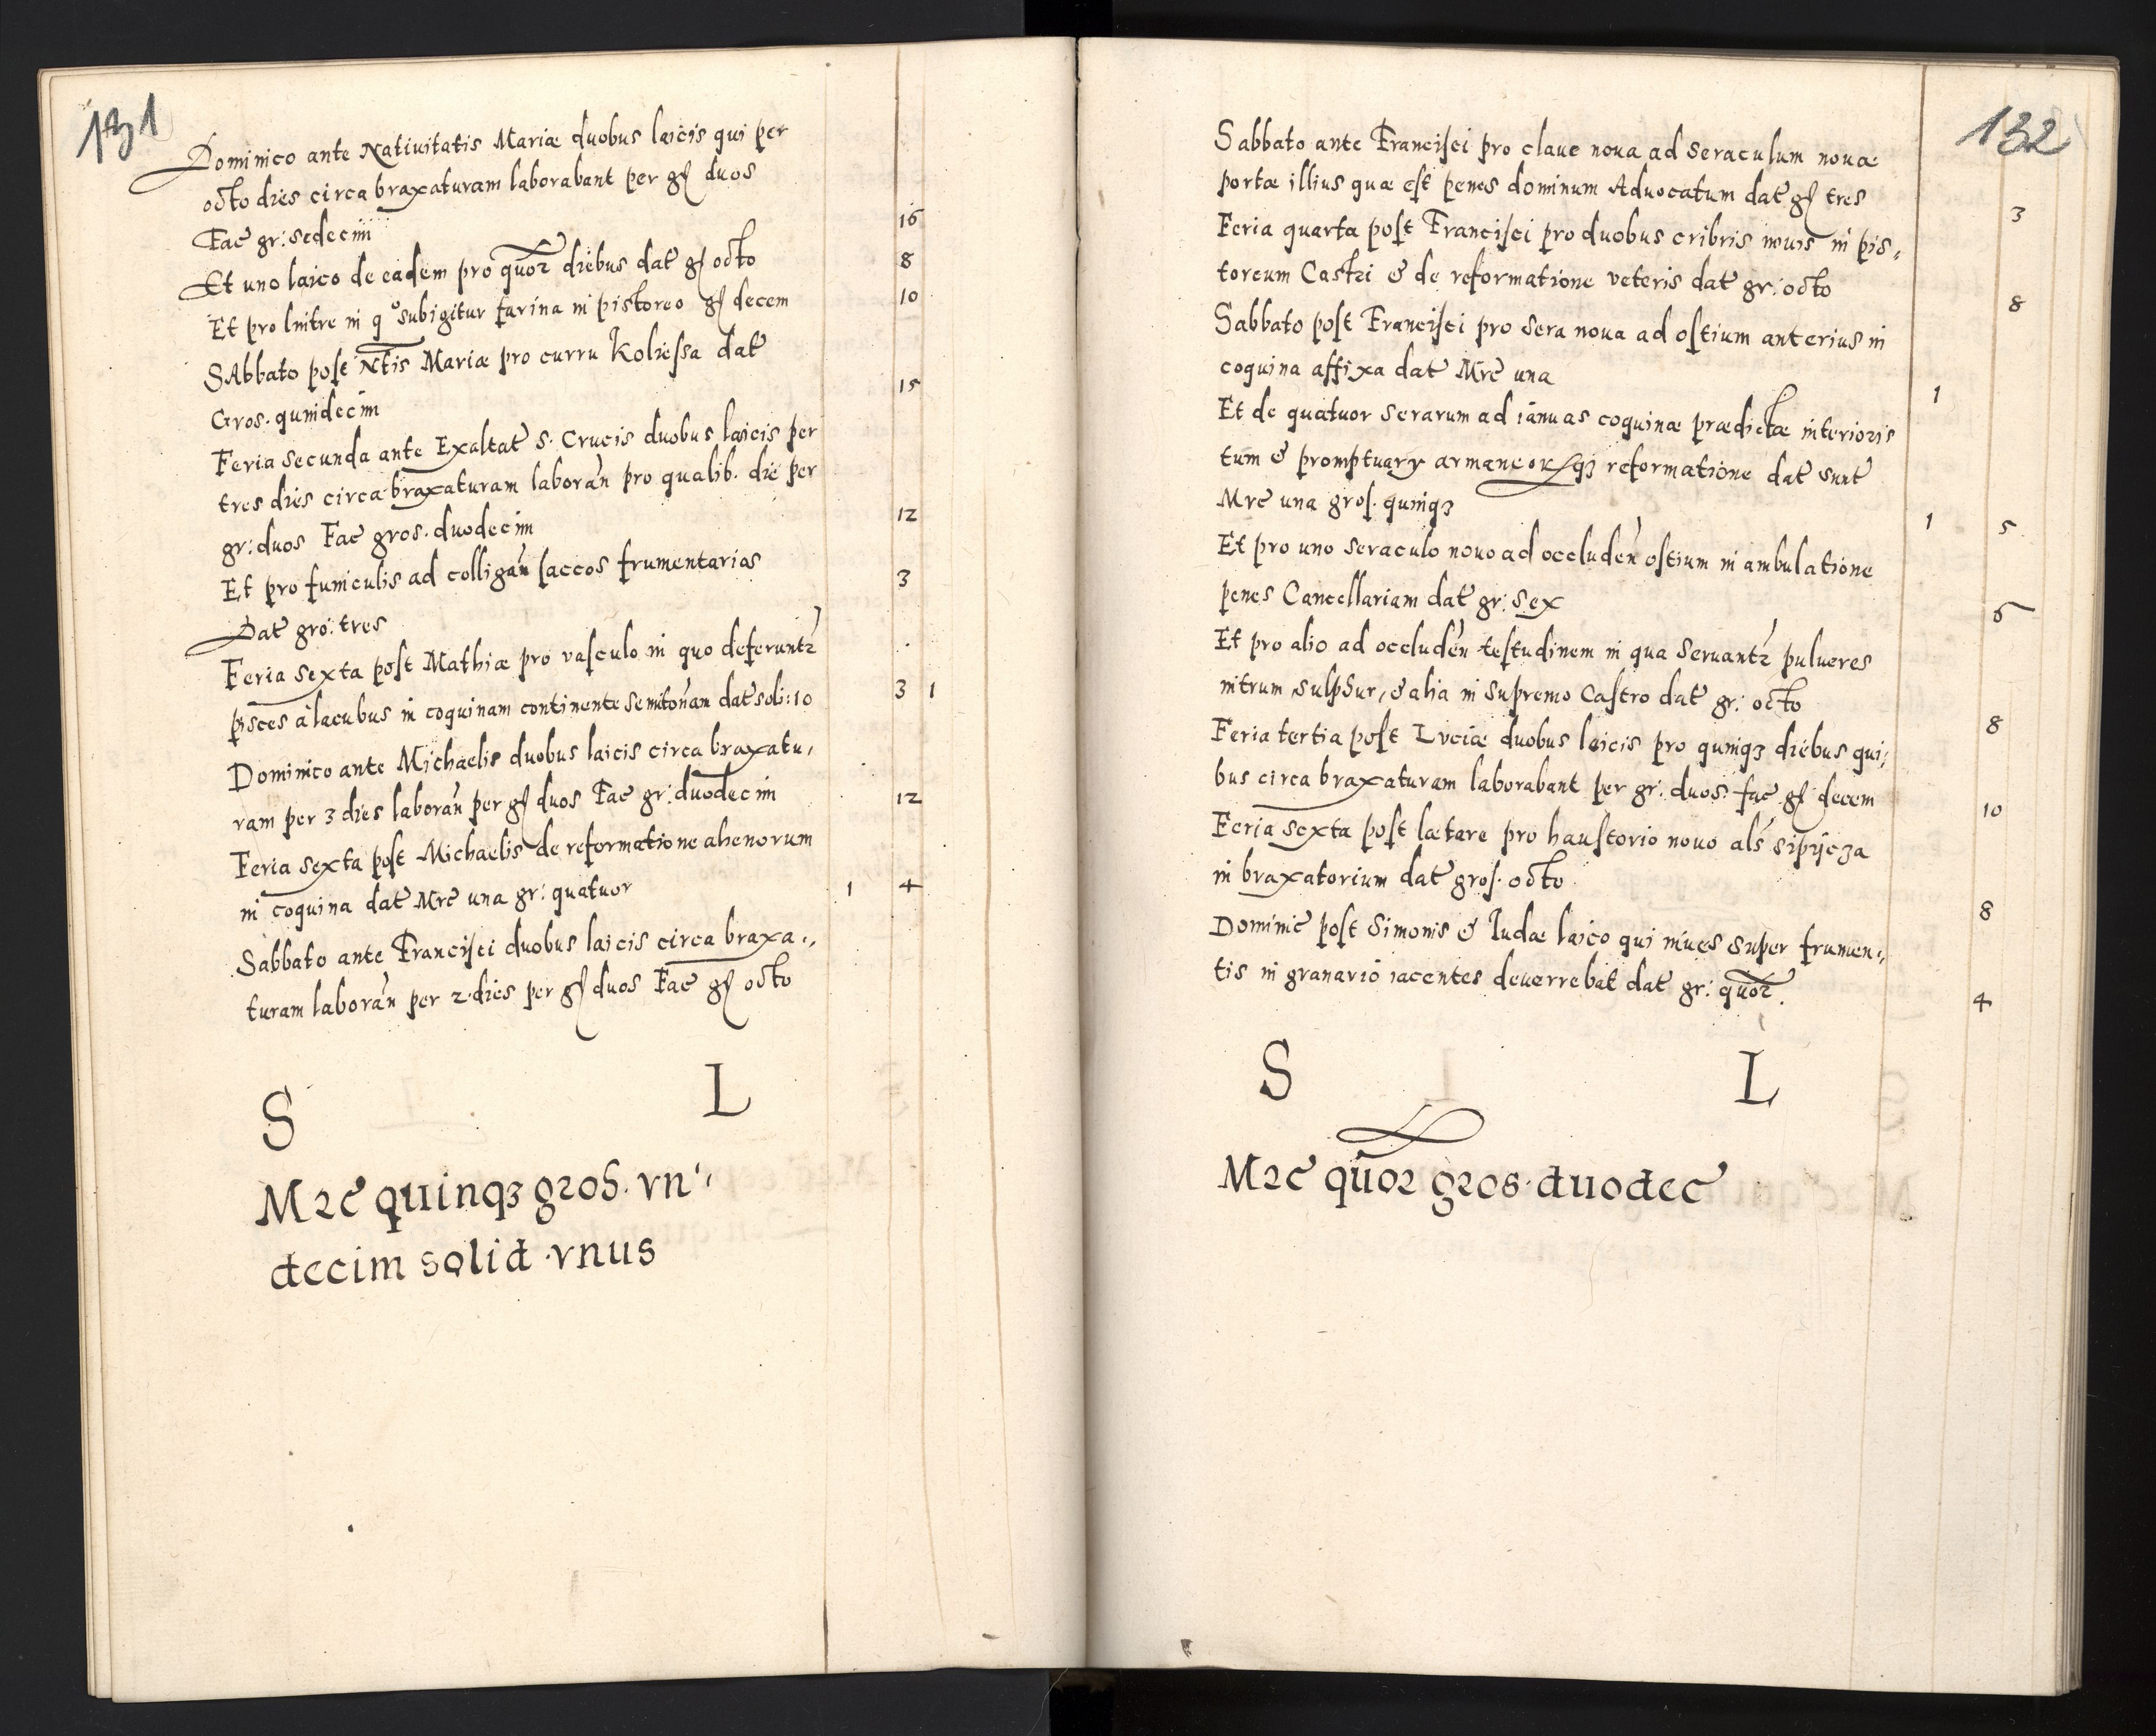 131
Dominico ante Natiuitatis Mariæ duobus laicis qui per
octo dies circa braxaturam laborabant per gſ duos
Fac̄ gr: sedecim
16
Et uno laico de eadem pro quōr diebus dat̄ gſ octo
8
Et pro lintre in qº subigitur farina in pistoreo gſ decem
10
SAbbato post Ntīs Mariæ pro curru Koliessa dat̄
Gros. quindecim
15
Feria secunda ante Exaltat̄ S. Crucis duobus laicis per
tres dies circa braxaturam laborań pro qualib. die per
gr: duos Fac̄ gros. duodecim
12
Et pro funiculis ad colligań saccos frumentarios
Dat̄ gro: tres
3
Feria sexta post Mathiæ pro vasculo in quo deferuntr
pisces à lacubus in coquinam continente semitońam dat̄ soli: 10
3 1
Dominico ante Michaelis duobus laicis circa braxatu,
ram per 3 dies laborań per gſ duos Fac̄ gr: duodecim
12
Feria sexta post Michaelis de reformatione ahenorum
in coquina dat̄ Mrc̄ una gr: quatuor
1 4
Sabbato ante Francisci duobus laicis circa braxa,,
turam laborań per 2 dies per gſ duos Fac̄ gſ octo
S L
Mrc̄ quinqꝫ gros. vn,,
decim solid. vnus
132
Sabbato ante Francisci pro claue noua ad seraculum nouæ
portæ illius quæ est penes dominum Aduocatum dat̄ gſ tres
3
Feria quarta post Francisci pro duobus cribris nouis in pis,,
toreum Castri & de reformatione veteris dat̄ gr: octo
8
Sabbato post Francisci pro sera noua ad ostium anterius in
coquina affixa dat̄ Mrc̄ una
1
Et de quatuor serarum ad ianuas coquinæ prædictæ interioris
tum & promptuary reformatione dat̄ sunt
Mrc̄ una gros. quinqꝫ
1 5
Et pro uno seraculo nouo ad occludeń ostium in ambulatione
penes Cancellariam dat̄ gr: sex
6
Et pro alio ad occludeń testudinem in qua seruantr pulueres
nitrum, sulphur, & alia in supremo Castro dat̄ gr: octo
8
Feria tertia post Lvciæ duobus laicis pro quinqꝫ diebus qui,
bus circa braxaturam laborabant per gr: duos: fac̄ gſ decem
10
Feria sexta post lætare pro haustorio nouo als̄ sipijcza
in braxatorium dat̄ gros. octo
8
Dominic̄ post Simonis & Iudæ laico qui niues super frumen,,
tis in granario iacentes deuerrebat dat̄ gr: quōr
4
S L
Mrc̄ quōr gros. duodec̄